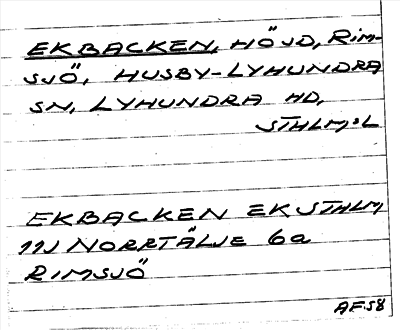 EKBACKEN, HÖJD, RIM-
SJÖ, HUSBY-LYHUNDRA
SN, LYHUNDRA HD,
STHLM:S L
EKBACKEN EK STHLM
11J NORRTÄLJE 6a
RIMSJÖ
AF58